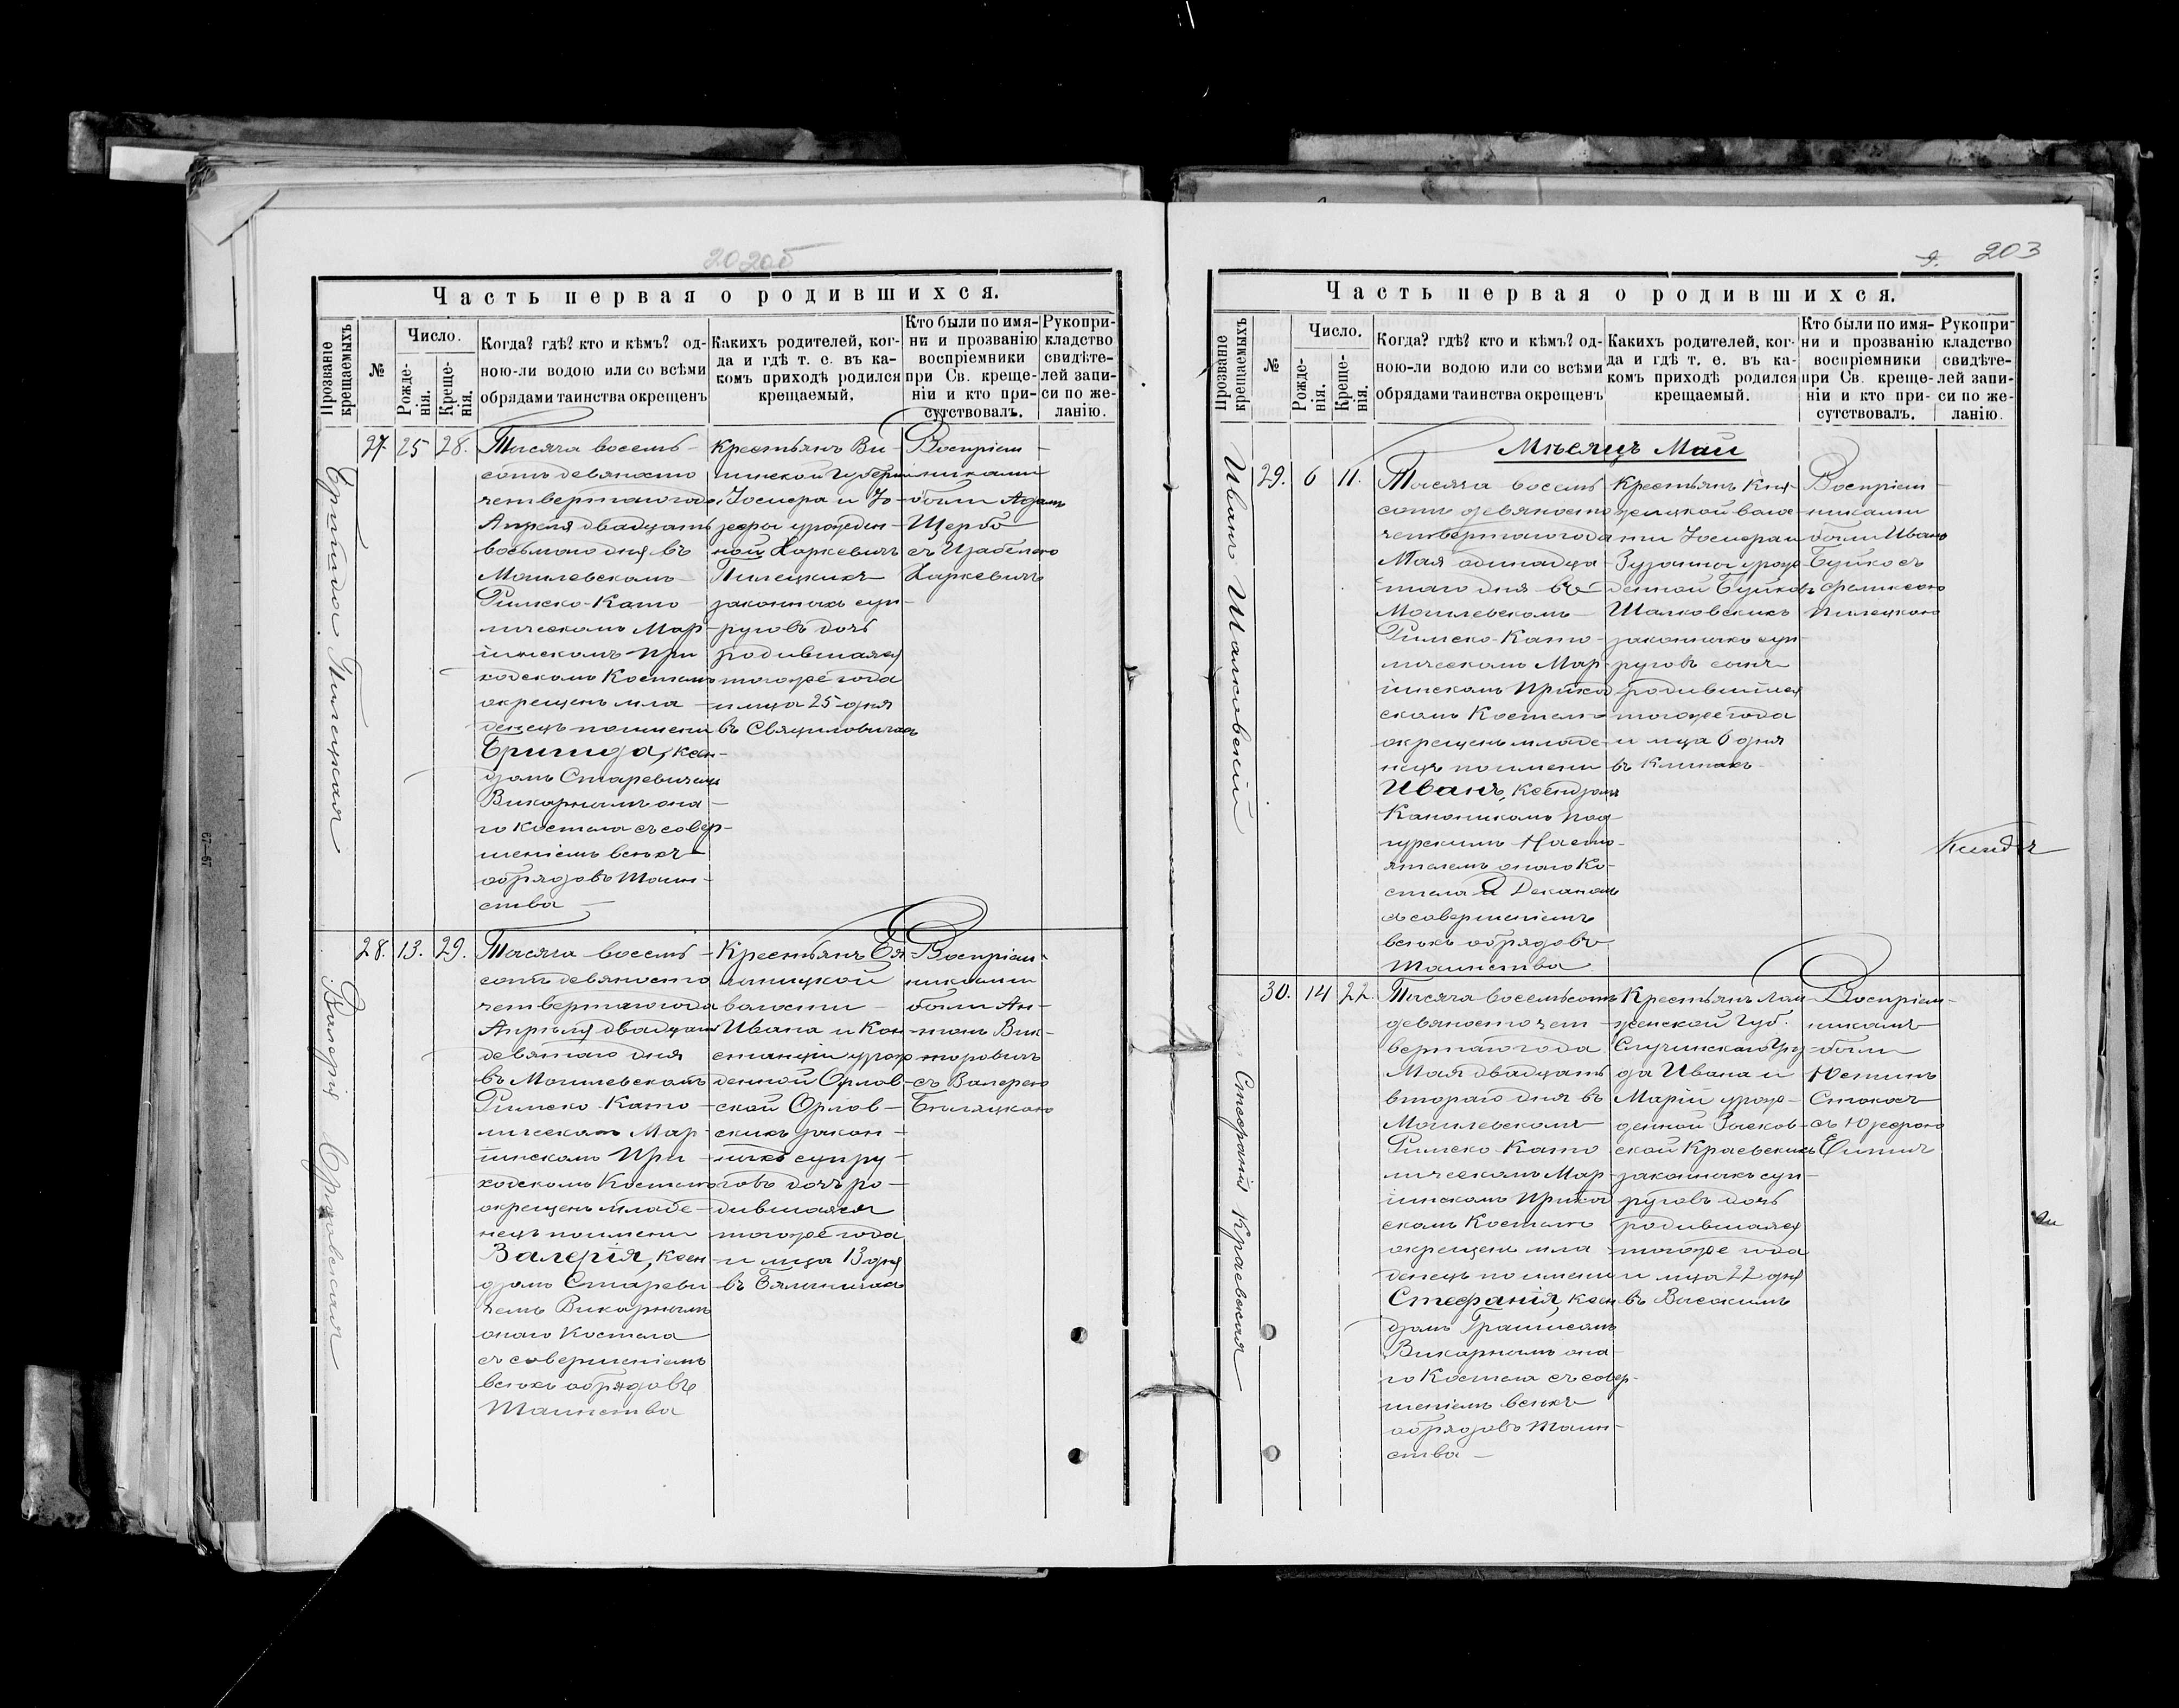 202об
Часть первая о родившихся.
Прозваніе крещаемыхъ
№
Число.
Рожде-
нія.
Креще-
нія.
Когда? гдѣ? кто и кѣмъ? од-
ною-ли водою или со всѣми
обрядами таинства окрещенъ
Какихъ родителей, ког-
да и гдѣ т. е. въ ка-
комъ приходѣ родился
крещаемый.
Кто были по имя-
ни и прозванію
воспріемники
при Св. креще-
ніи и кто при-
сутствовалъ.
Рукопри-
кладство
свидѣте-
лей запи-
си по же-
ланію.
Бригида Пилецкая
27. 25 28.
Тысяча восемь-
сотъ девяносто
четвертаго года
Апрѣля двадцать
восьмого дня въ
Могилевскомъ
Римско-Като-
лическомъ Мар-
іинскомъ При
ходскомъ Костелѣ
окрещенъ мла-
денецъ по имени
Бригида, ксен-
дзомъ Старевичемъ
Викарнымъ она-
го Костела съ совер-
шеніемъ всѣхъ
обрядовъ Таин-
ства
Крестьянъ Ви-
ленской Губерніи
Іосифа и Іо-
зефы урожден-
ной Харкевичъ
Пилецкихъ
законныхъ суп-
руговъ дочь
родившаяся
того же года
и мца 25 дня
въ Свяциловичахъ
Воспріем-
никами
были Адамъ
Щербо
съ Изабелею
Харкевичъ
Валерія Орловская
28. 13. 29.
Тысяча восемь-
сотъ девяносто
четвертаго года
Апрѣля двадцать
девятаго дня
въ Могилевскомъ
Римско-Като-
лическомъ Мар-
іинскомъ При
ходскомъ Костелѣ
окрещенъ младе-
нецъ по имени
Валерія, ксен
дзомъ Стареви
чемъ Викарнымъ
онаго Костела
съ совершеніемъ
всѣхъ обрядовъ
Таинства
Крестьянъ Бя-
лыницкой
волости
Ивана и Кон-
станціи урож-
денной Орлов-
ской Орлов-
скихъ закон-
ныхъ супру-
говъ дочь ро-
дившаяся
того же года
и мца 13 дня
въ Бялыничахъ
Воспріем-
никами
были Ан-
тонъ Вик-
торовичъ
съ Валерею
Бѣляцкою
9. 203
Часть первая о родившихся.
Прозваніе крещаемыхъ
№
Число.
Рожде-
нія.
Креще-
нія.
Когда? гдѣ? кто и кѣмъ? од-
ною-ли водою или со всѣми
обрядами таинства окрещенъ
Какихъ родителей, ког-
да и гдѣ т. е. въ ка-
комъ приходѣ родился
крещаемый.
Кто были по имя-
ни и прозванію
воспріемники
при Св. креще-
ніи и кто при-
сутствовалъ.
Рукопри-
кладство
свидѣте-
лей запи-
си по же-
ланію.
Мѣсяцъ Май
Иванъ Шалковскій
29. 6 11.
Тысяча восемь
сотъ девяносто
четвертаго года
Мая одинадца
таго дня въ
Могилевскомъ
Римско-Като-
лическомъ Мар-
іинскомъ Приход
скомъ Костелѣ
окрещенъ младе-
нецъ по имени
Иванъ, ксендзомъ
Каноникомъ Под
гурскимъ Насто-
ятелемъ онаго Ко-
стела и Деканомъ
съ совершеніемъ
всѣхъ обрядовъ
Таинства
Крестьянъ Кня-
жицкой воло-
сти Іосифа и
Зузанны урож
денной Буйко
Шалковскихъ
законныхъ суп-
руговъ сынъ
родившійся
того же года
и мца 6 дня
въ Климахъ
Воспріем-
никами
были Иванъ
Буйко съ
Феликсою
Пилецкою
Стефанія Краевская
30. 14 22.
Тысяча восемьсотъ
девяносто чет-
вертаго года
Мая двадцать
втораго дня въ
Могилевскомъ
Римско-Като
лическомъ Мар-
іинскомъ Приход
скомъ Костелѣ
окрещенъ мла-
денецъ по имени
Стефанія, ксен
дзомъ
Викарнымъ она-
го Костела съ совер-
шеніемъ всѣхъ
обрядовъ Таин-
ства
Крестьянъ Лом-
женской Губ.
Щучинскаго Уѣз-
да Ивана и
Маріи урож-
денной
Краевскихъ
законныхъ суп-
руговъ дочь
родившаяся
того же года
и мца 22 дня
въ
Воспріем-
никами
были
Юстинъ
съ Юзефою